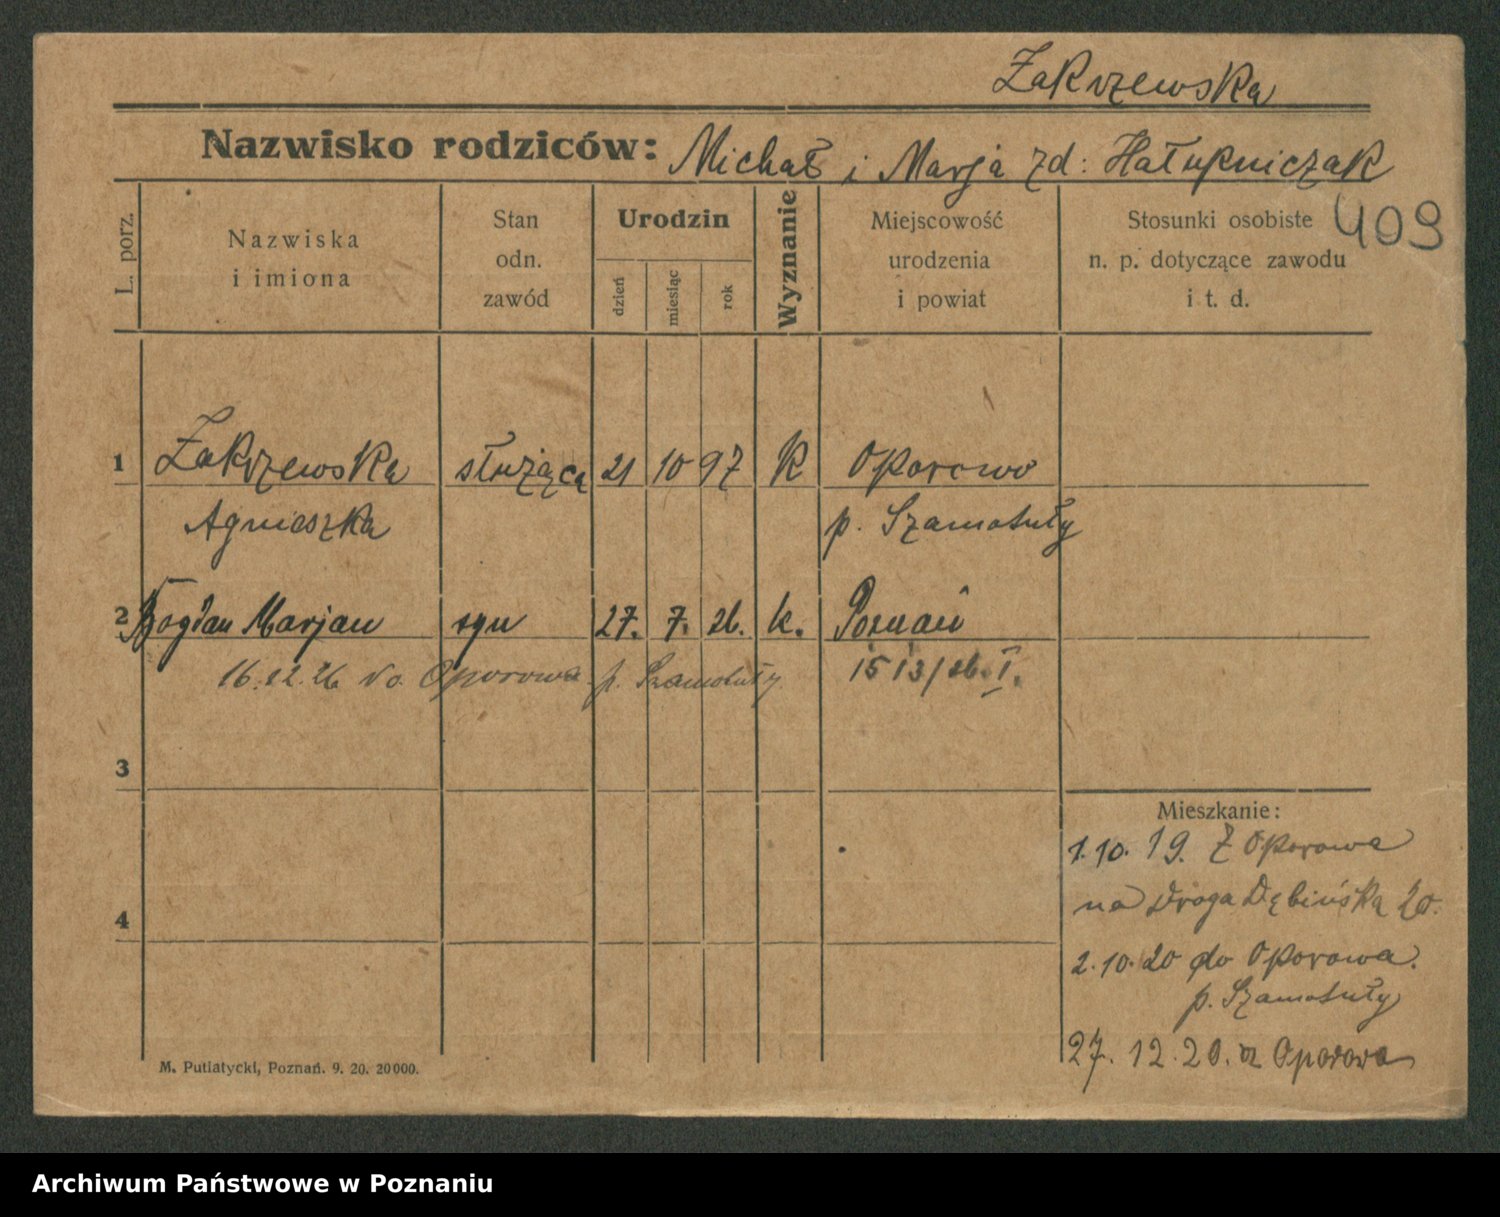 Zakrzewska
Nazwisko rodziców: Michał i Marja zd: Hałupniczak
409
L. porz.
Nazwiska
i imiona
Stan
odn.
zawód
Urodzin
dzień
miesiąc
rok
Wyznanie
Miejscowość
urodzenia
i powiat
Stosunki osobiste
n. p. dotyczące zawodu
i t. d.
1 Zakrzewska służąca 21 10 97 K Oporowo
Agnieszka p. Szamotuły
2 Bogdan Marjan syn 27. 7. 26. k. Poznań
16.12.26 do Oporowa p. Szamotuły 1513/26. I.
3
4
Mieszkanie:
1.10.19. Z Oporowa
na Droga Dębińska 20.
2.10.20 do Oporowa.
p. Szamotuły
27. 12. 20. z Oporowa
M. Putiatycki, Poznań. 9. 20. 20000.
Archiwum Państwowe w Poznaniu